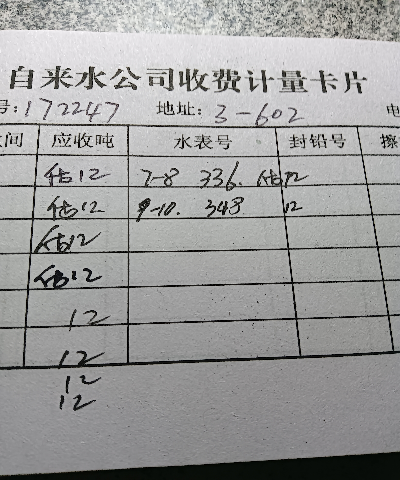 自来水公司收费计量卡片
号:172247 地址: 3-602 电
间 应收吨 水表号 封铅号 擦
估12 7-8 336. 估12
估12 9-10. 348 12
估12
估12
12
12
12
12